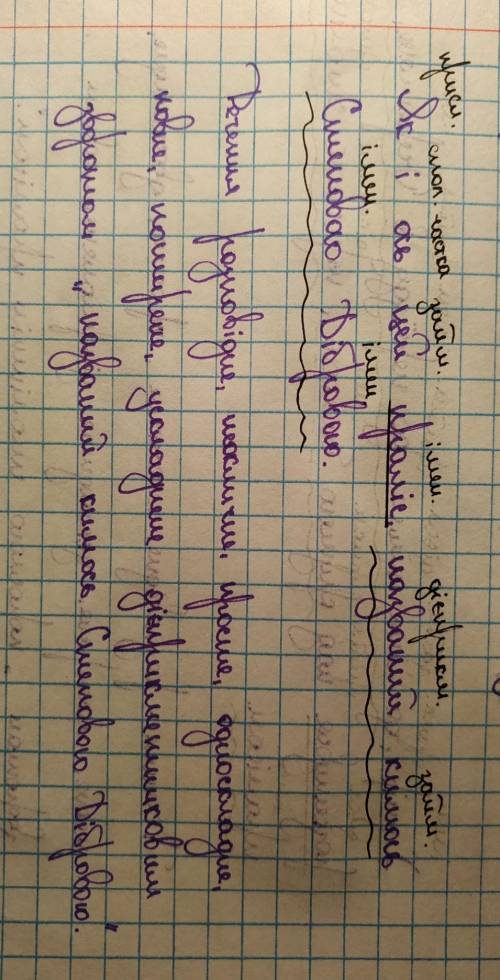 присл. спол. частка займ. імен. дієприкм. займ.
Як і цей праліс, названий кимось
імен. імен
Степовою Дібровою.
Речення розповідне, неокличне, просте, односкладне,
повне, поширене, ускладнене дієприкметниковим
зворотом „названий кимось Степовою Дібровою".